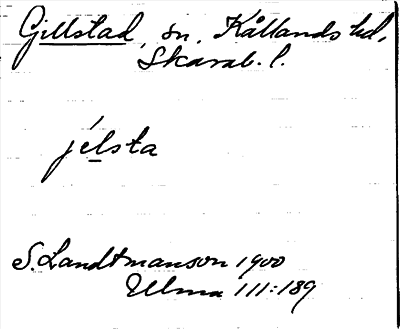 Gillstad, sn. Kållands hd,
Skarab. l.
jélsta
S. Landtmanson 1900
Ulma 111:189